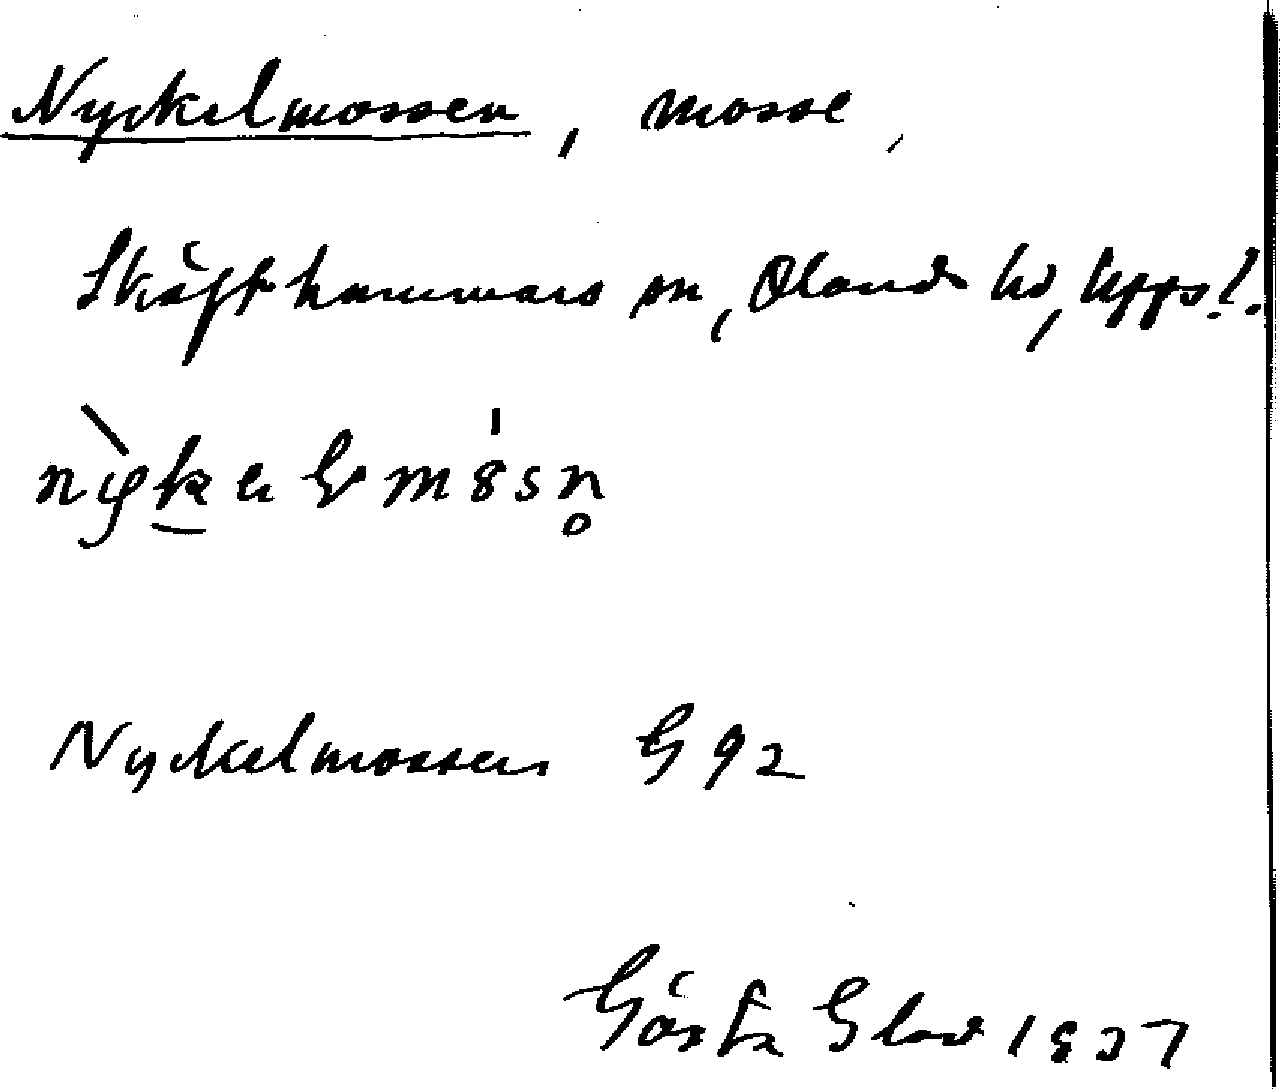 Nyckelmossen, mosse,
Skäfthammars sn, Olands hd, Upps. l.
Nyckelmossen G 92
Gösta Glad 1937